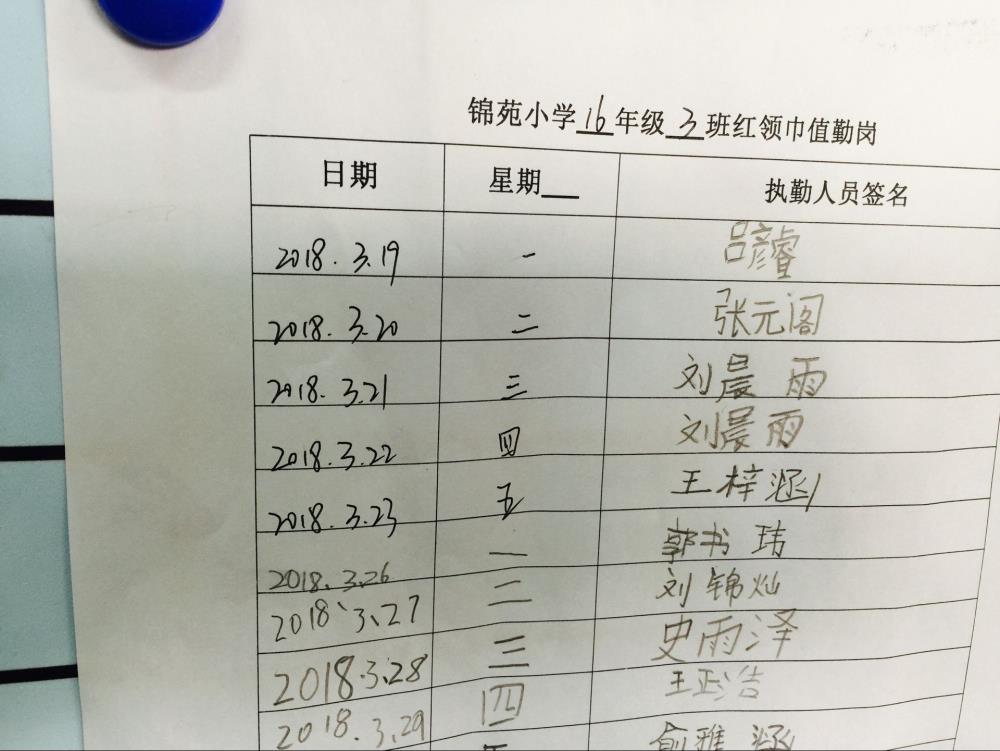 锦苑小学16年级3班红领巾值勤岗
日期 星期 执勤人员签名
2018.3.19 一 吕彦睿
2018.3.20 二 张元阁
2018.3.21 三 刘晨雨
2018.3.22 四 刘晨雨
2018.3.23 五 王梓涵
2018.3.26 一 郭书玮
2018.3.27 二 刘锦灿
2018.3.28 三 史雨泽
2018.3.29 四 王正浩
俞雅涵